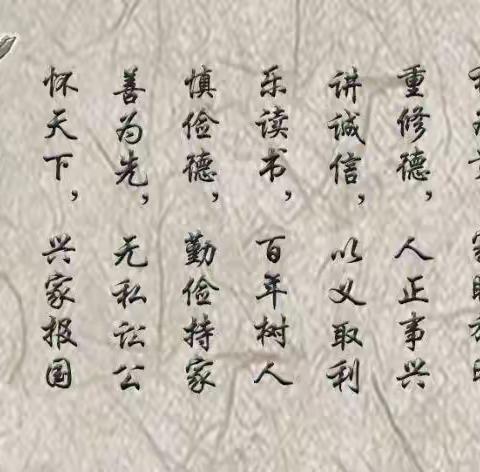 重修德，人正事兴
讲诚信，以义取利
乐读书，百年树人
慎俭德，勤俭持家
善为先，无私讼公
怀天下，兴家报国